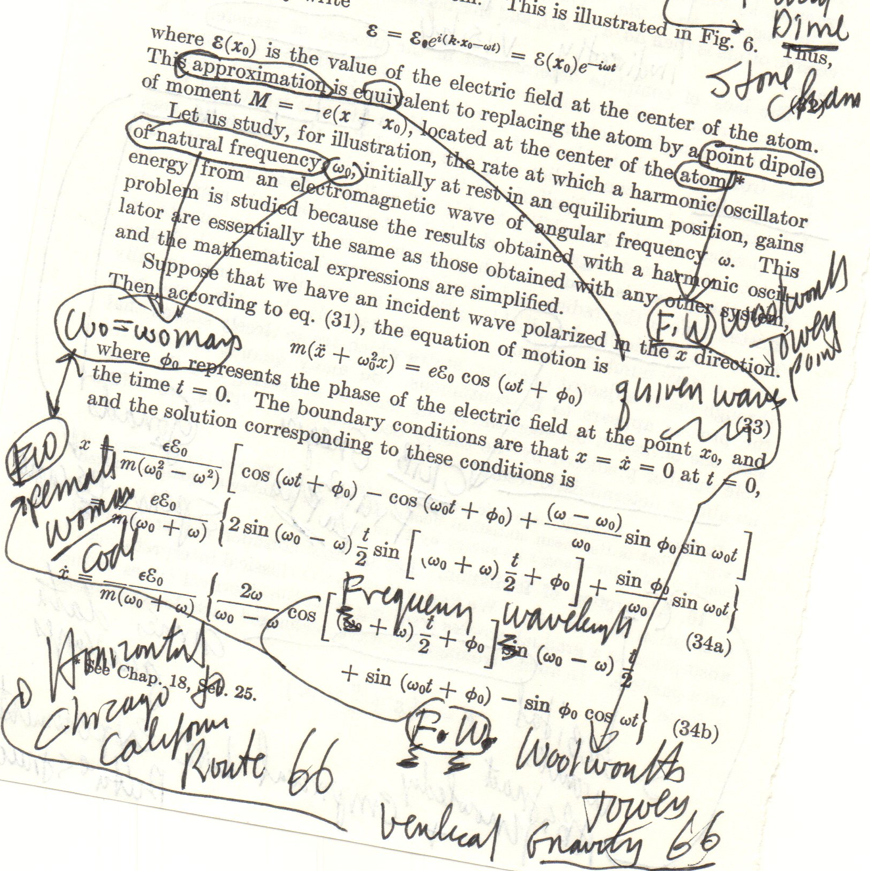 This is illustrated in Fig. 6. Thus,
Dime
Stone
ε = ε₀e^{i(k·x₀−ωt)} = ε(x₀)e^{−iωt}
where ε(x₀) is the value of the electric field at the center of the atom.
This approximation is equivalent to replacing the atom by a point dipole
of moment M = −e(x − x₀), located at the center of the atom.*
Let us study, for illustration, the rate at which a harmonic oscillator
of natural frequency ω₀, initially at rest in an equilibrium position, gains
energy from an electromagnetic wave of angular frequency ω. This
problem is studied because the results obtained with a harmonic oscil-
lator are essentially the same as those obtained with any other system,
and the mathematical expressions are simplified.
Suppose that we have an incident wave polarized in the x direction.
Then, according to eq. (31), the equation of motion is
ω₀ = woman
F.W Woolworth
Tower
point
m(ẍ + ω₀²x) = eε₀ cos (ωt + φ₀)
(33)
wave
where φ₀ represents the phase of the electric field at the point x₀, and
the time t = 0. The boundary conditions are that x = ẋ = 0 at t = 0,
and the solution corresponding to these conditions is
female
woman
code
x = eε₀ / m(ω₀² − ω²) [cos (ωt + φ₀) − cos (ω₀t + φ₀) + (ω − ω₀)/ω₀ sin φ₀ sin ω₀t]
= eε₀ / m(ω₀ + ω) {2 sin (ω₀ − ω) t/2 sin [(ω₀ + ω) t/2 + φ₀] + sin φ₀/ω₀ sin ω₀t}
(34a)
Frequency wavelength
ẋ = eε₀ / m(ω₀ + ω) {2ω/(ω₀ − ω) cos [(ω₀ + ω) t/2 + φ₀] sin (ω₀ − ω) t/2
+ sin (ω₀t + φ₀) − sin φ₀ cos ωt} (34b)
Horizontal
* See Chap. 18, Sec. 25.
Chicago
California
Route 66
F.W. Woolworth
Tower
Vertical Gravity 66